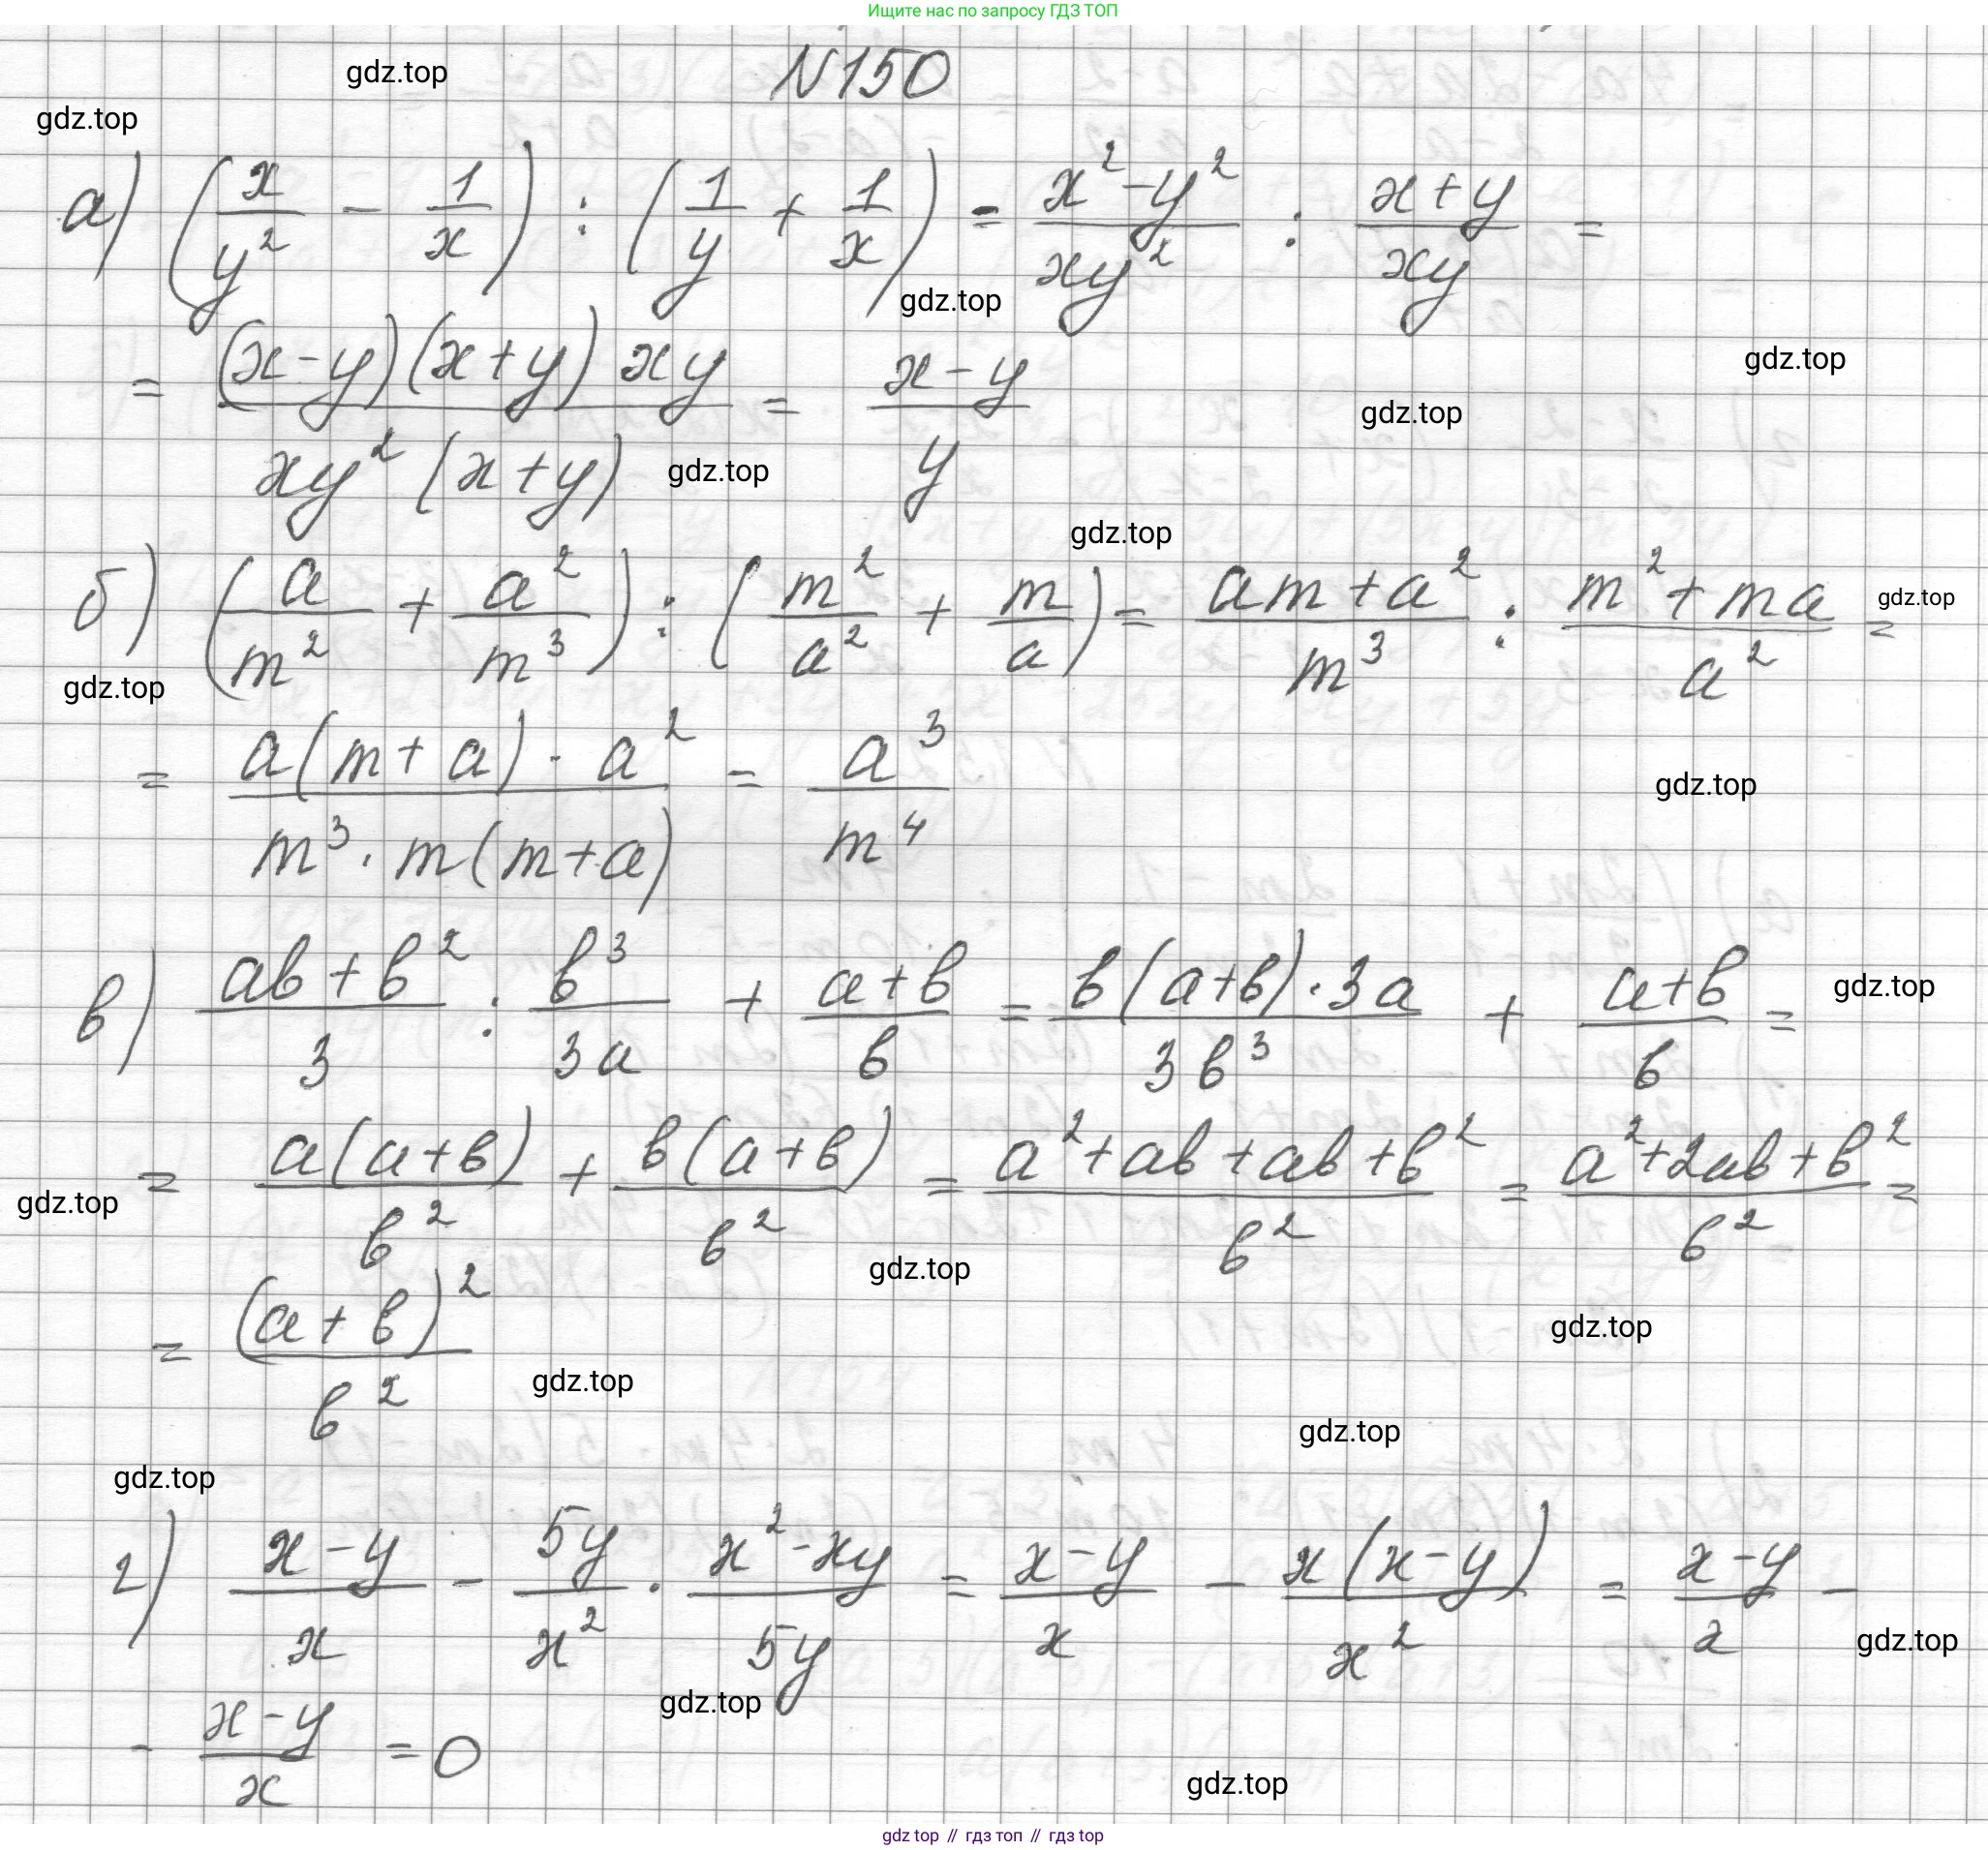 Ищите нас по запросу ГДЗ ТОП
N150
gdz.top
gdz.top
а) (x/y² - 1/x) : (1/y + 1/x) = (x²-y²)/(xy²) : (x+y)/(xy) =
gdz.top
gdz.top
= ((x-y)(x+y)xy)/(xy²(x+y)) = (x-y)/y
gdz.top
gdz.top
gdz.top
б) (a/m² + a²/m³) : (m²/a² + m/a) = (am+a²)/m³ : (m²+ma)/a² =
gdz.top
gdz.top
= (a(m+a)·a²)/(m³·m(m+a)) = a³/m⁴
gdz.top
в) (ab+b²)/3 : b³/(3a) + (a+b)/b = (b(a+b)·3a)/(3b³) + (a+b)/b =
gdz.top
= (a(a+b))/b² + (b(a+b))/b² = (a²+ab+ab+b²)/b² = (a²+2ab+b²)/b² =
gdz.top
gdz.top
= (a+b)²/b²
gdz.top
gdz.top
gdz.top
gdz.top
г) (x-y)/x - 5y/x² · (x²-xy)/(5y) = (x-y)/x - (x(x-y))/x² = (x-y)/x -
gdz.top
gdz.top
- (x-y)/x = 0
gdz.top
gdz top // гдз топ // гдз top